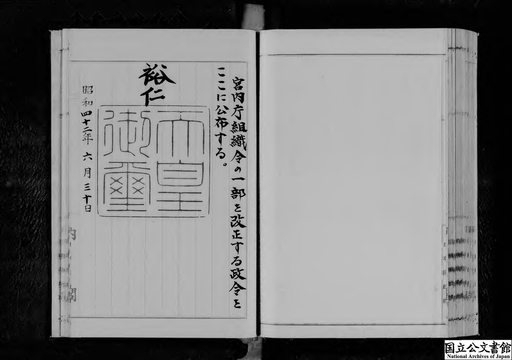 宮内庁組織令の一部を改正する政令を
ここに公布する。
裕仁
天皇
御璽
昭和四十二年六月三十日
内閣
国立公文書館
National Archives of Japan